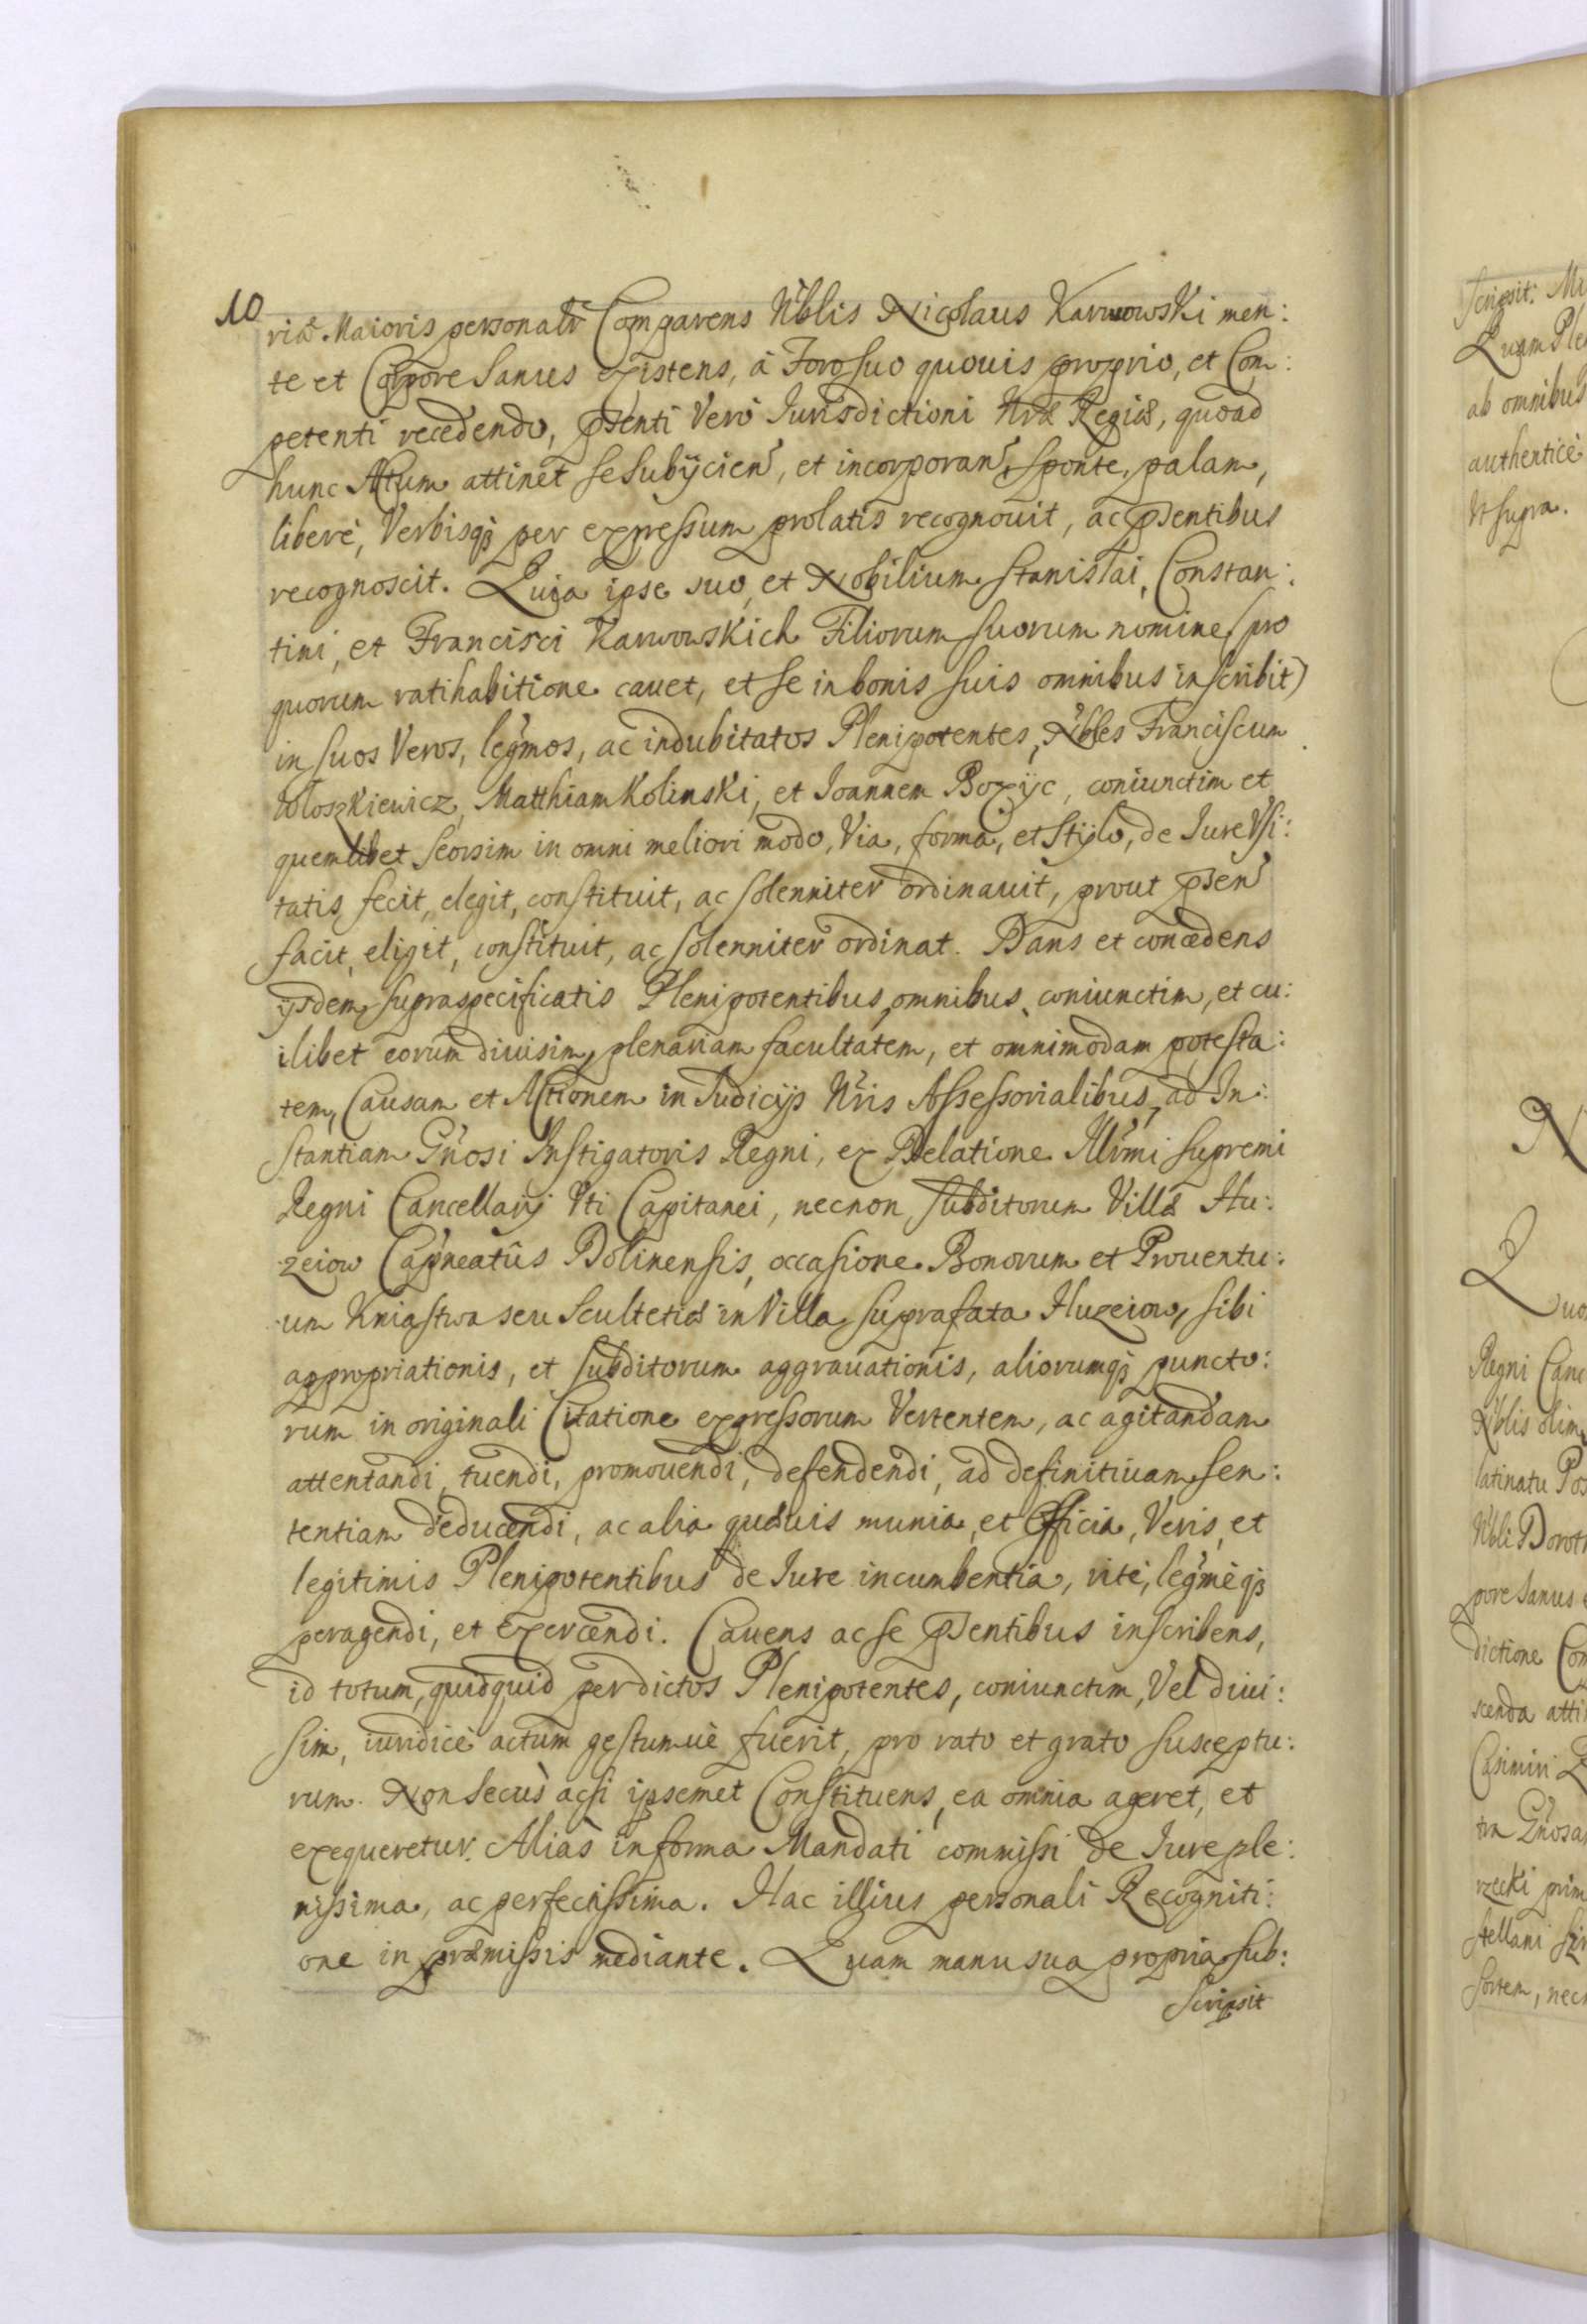 10
riæ Maioris personalr Comparens Nblis Nicolaus Karwowski men:
te et Corpore Sanus existens, à Foro suo quouis proprio, et Com:
petenti recedendo, pñti Verò Iurisdictioni Nræ Regiæ, quoad
hunc Actum attinet se subÿcien, et incorporan, sponte, palam,
liberè, Verbisq́ per expressum prolatis recognouit, ac pñtibus
recognoscit. Quia ipse suo, et Nobilium Stanislai, Constan:
tini, et Francisci Karwowskich Filiorum suorum nomine (pro
quorum ratihabitione cauet, et se in bonis suis omnibus inscribit)
in suos Veros, legmos, ac indubitatos Plenipotentes, Nbles Franciscum
Wloszkiewicz, Matthiam Kolinski, et Ioannem Boxÿc, coniunctim et
quemlibet seorsim in omni meliori modo, Via, forma, et Stÿlo, de Iure Vsi:
tatis, fecit, elegit, constituit, ac solenniter ordinauit, prout psen
facit, eligit, constituit, ac solenniter ordinat. Dans et concedens
ijsdem supraspecificatis Plenipotentibus, omnibus, coniunctim, et cu:
ilibet eorum diuisim, plenariam facultatem, et omnimodam potesta:
tem, Causam et Actionem in Iudicÿs Nris Assessorialibus, ad In:
stantiam Gnosi Instigatoris Regni, ex Delatione Illrmi supremi
Regni Cancellarÿ Vti Capitanei, necnon subditorum Villæ Hu:
zeiow Capneatûs Dolinensis, occasione Bonorum et Prouentu:
um Kniastwa seu Scultetiæ in Villa suprafata Huzeiow, sibi
appropriationis, et subditorum aggrauationis, aliorumq́ puncto:
rum in originali Citatione expressorum Vertentem, ac agitandam
attentandi, tuendi, promouendi, defendendi, ad definitiuam sen:
tentiam deducendi, ac alia quæuis munia, et Officia, Veris, et
legitimis Plenipotentibus de Iure incumbentia, ritè, legmèq́
peragendi, et exercendi. Cauens ac se psentibus inscribens,
id totum, quidquid per dictos Plenipotentes, coniunctim, Vel diui:
sim, iuridicè actum gestumuè fuerit, pro rato et grato susceptu:
rum. Non secùs acsi ipsemet Constituens, ea omnia ageret, et
exequeretur. Aliàs in forma Mandati commissi de Iure ple:
nissima, ac perfectissima. Hac illius personali Recogniti:
one in præmissis mediante. Quam manu sua propria sub:
scripsit
scripsit.
Quam Ple
ab omnibus
authenticè
Vt supra.
N
Quo
Regni Canc
Nblis olim
latinatu Pos
Nbli Dorot
pore Sanus
dictione Con
scenda atti
Casimiri
tra Gnosa
rzecki prim
stellani
sortem, nec